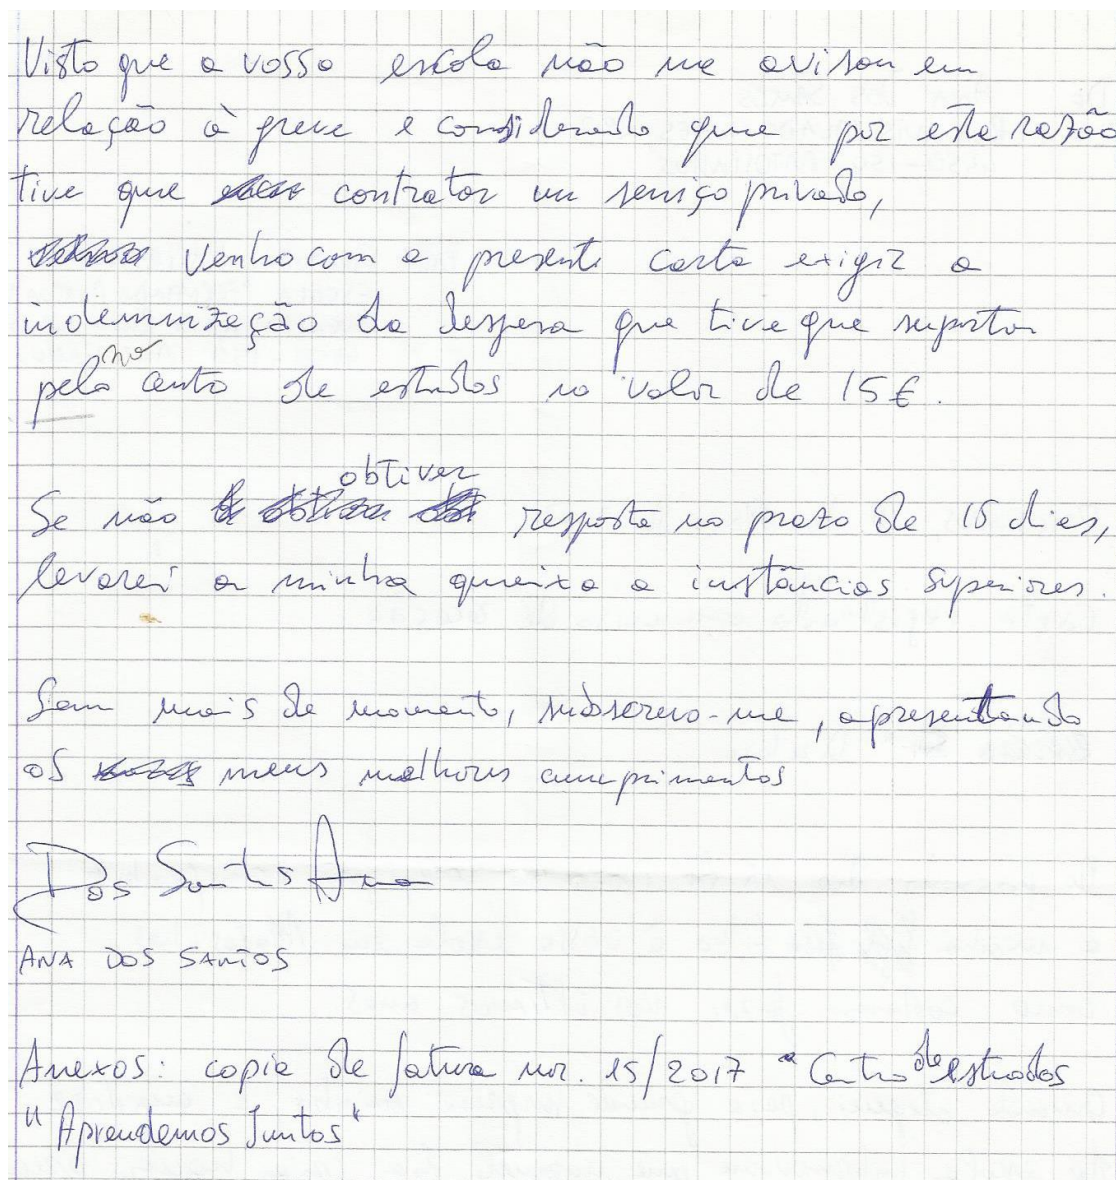 Visto que a vossa escola não me avisou em
relação à greve e considerando que por esta razão
tive que contratar um serviço privado,
venho com a presente carta exigir a
indemnização da despesa que tive que suportar
pelo no cento de estudos no valor de 15€.
Se não obtiver resposta no prazo de 15 dias,
levarei a minha queixa a instâncias superiores.
Sem mais de momento, subscrevo-me, apresentando
os meus melhores cumprimentos
Dos Santos Ana
ANA DOS SANTOS
Anexos: copia de fatura nr. 15/2017 "Centro de estudos
"Aprendemos Juntos"